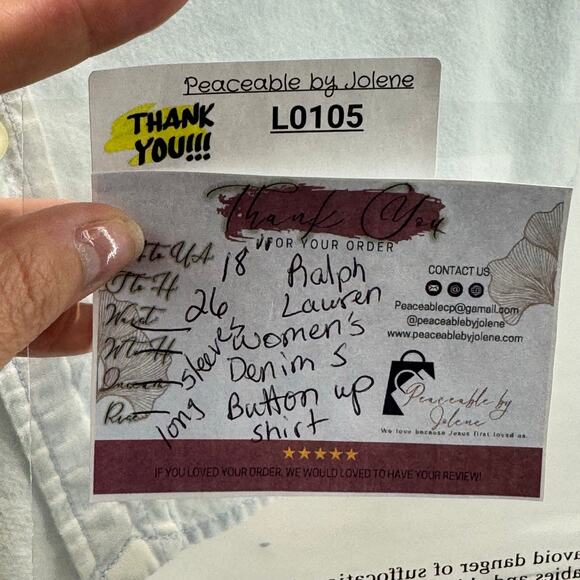 Peaceable by Jolene
THANK YOU!!!
L0105
Thank You
FOR YOUR ORDER
to UA
18"
T to H
Waist
26
long sleeves
Ralph
Lauren
Women's
Denim S
Button up
shirt
CONTACT US
Peaceablecp@gamail.com
@peaceablebyjolene
www.peaceablebyjolene.com
Peaceable by
Jolene
We love because Jesus first loved us.
IF YOU LOVED YOUR ORDER, WE WOULD LOVED TO HAVE YOUR REVIEW!
avoid danger of